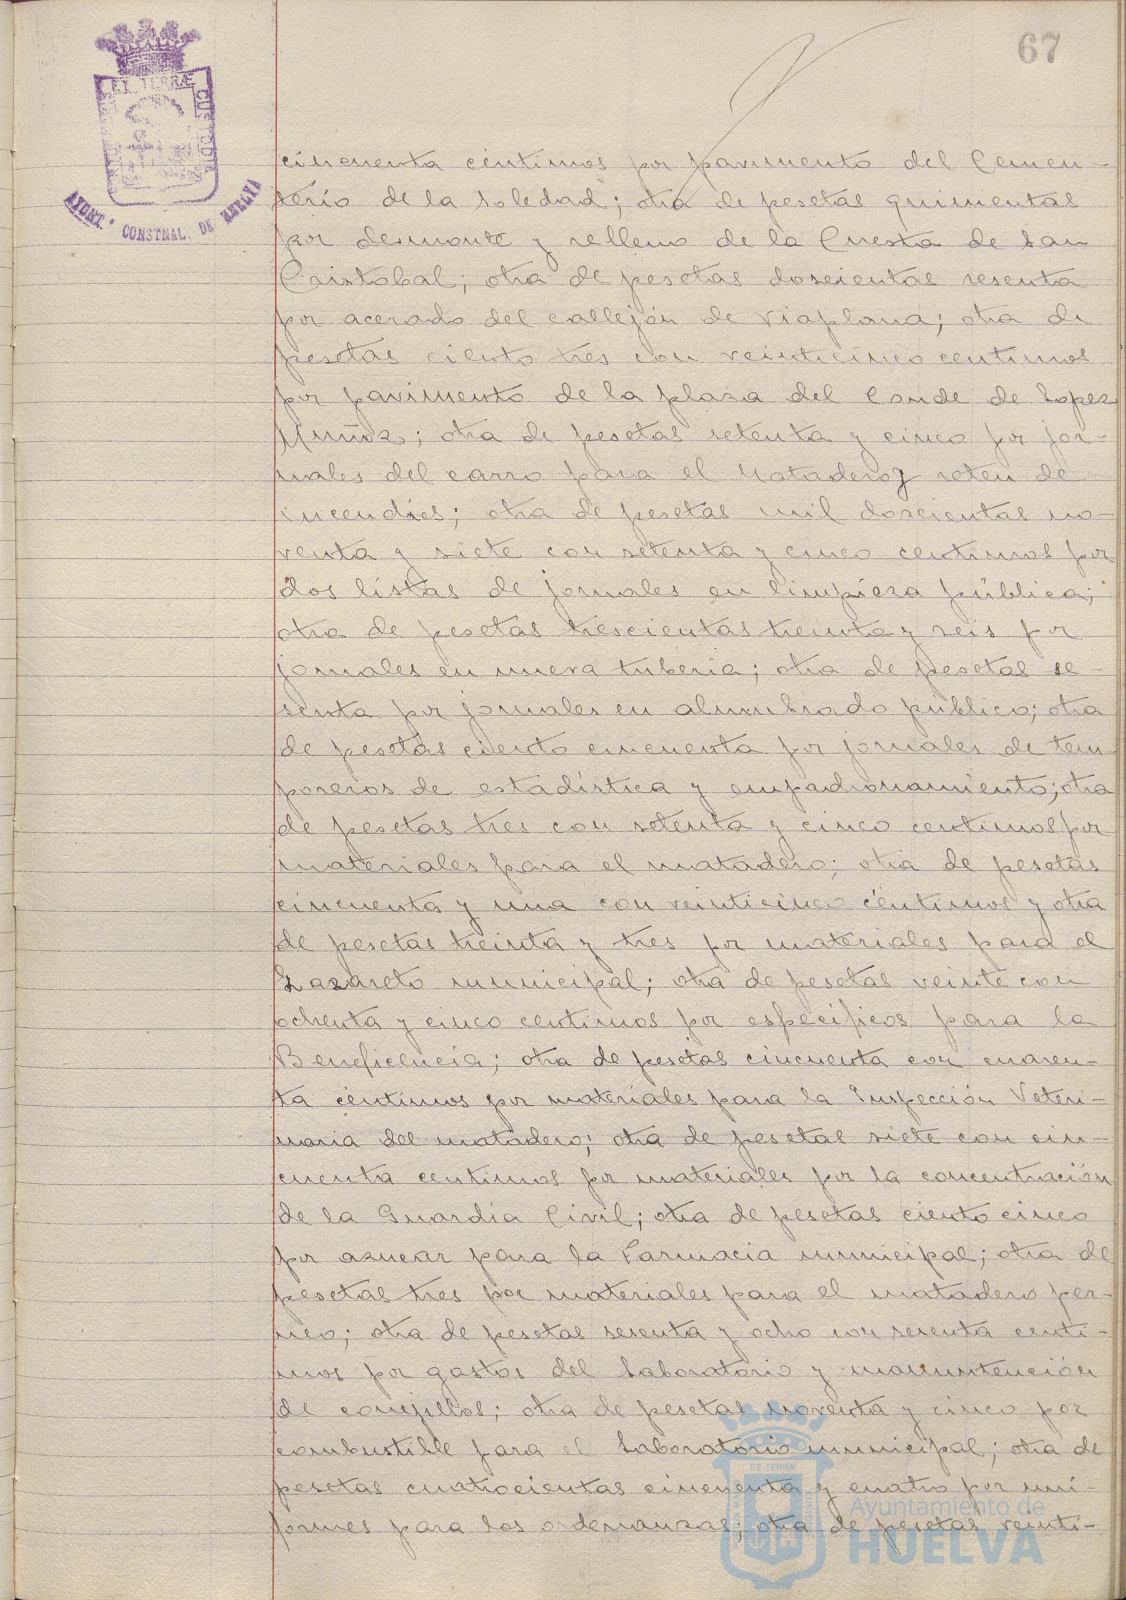 67
ET TERRÆ
CUSTODI
AYUNT. CONSTNAL. DE HUELVA
cincuenta céntimos por pavimento del Cemen-
terio de la Soledad; otra de pesetas quinientas
por desmonte y relleno de la Cuesta de San
Cristobal; otra de pesetas doscientas sesenta
por acerado del callejón de Viaplana; otra de
pesetas ciento tres con veinticinco centimos
por pavimento de la plaza del Conde de Lopez
Muñoz; otra de pesetas setenta y cinco por jor-
nales del carro para el Matadero y reten de
incendios; otra de pesetas mil doscientas no-
venta y siete con setenta y cinco centimos por
dos listas de jornales en limpieza pública;
otra de pesetas trescientas treinta y seis por
jornales en nueva tuberia; otra de pesetas se-
senta por jornales en alumbrado público; otra
de pesetas ciento cincuenta por jornales de tem
poreros de estadística y empadronamiento; otra
de pesetas tres con setenta y cinco centimos por
materiales para el matadero; otra de pesetas
cincuenta y una con veinticinco céntimos y otra
de pesetas treinta y tres por materiales para el
Lazareto municipal; otra de pesetas veinte con
ochenta y cinco centimos por especificos para la
Beneficencia; otra de pesetas cincuenta con cuaren-
ta céntimos por materiales para la Inspección Veteri-
naria del matadero; otra de pesetas siete con cin-
cuenta centimos por materiales por la concentración
de la Guardia Civil; otra de pesetas ciento cinco
por azucar para la Farmacia municipal; otra de
pesetas tres por materiales para el matadero per-
neo; otra de pesetas sesenta y ocho con sesenta centi-
mos por gastos del Laboratorio y manuntención
de conejillos; otra de pesetas noventa y cinco por
combustible para el Laboratorio municipal; otra de
pesetas cuatrocientas cincuenta y cuatro por uni-
formes para los ordenanzas; otra de pesetas veinti-
Ayuntamiento de
HUELVA